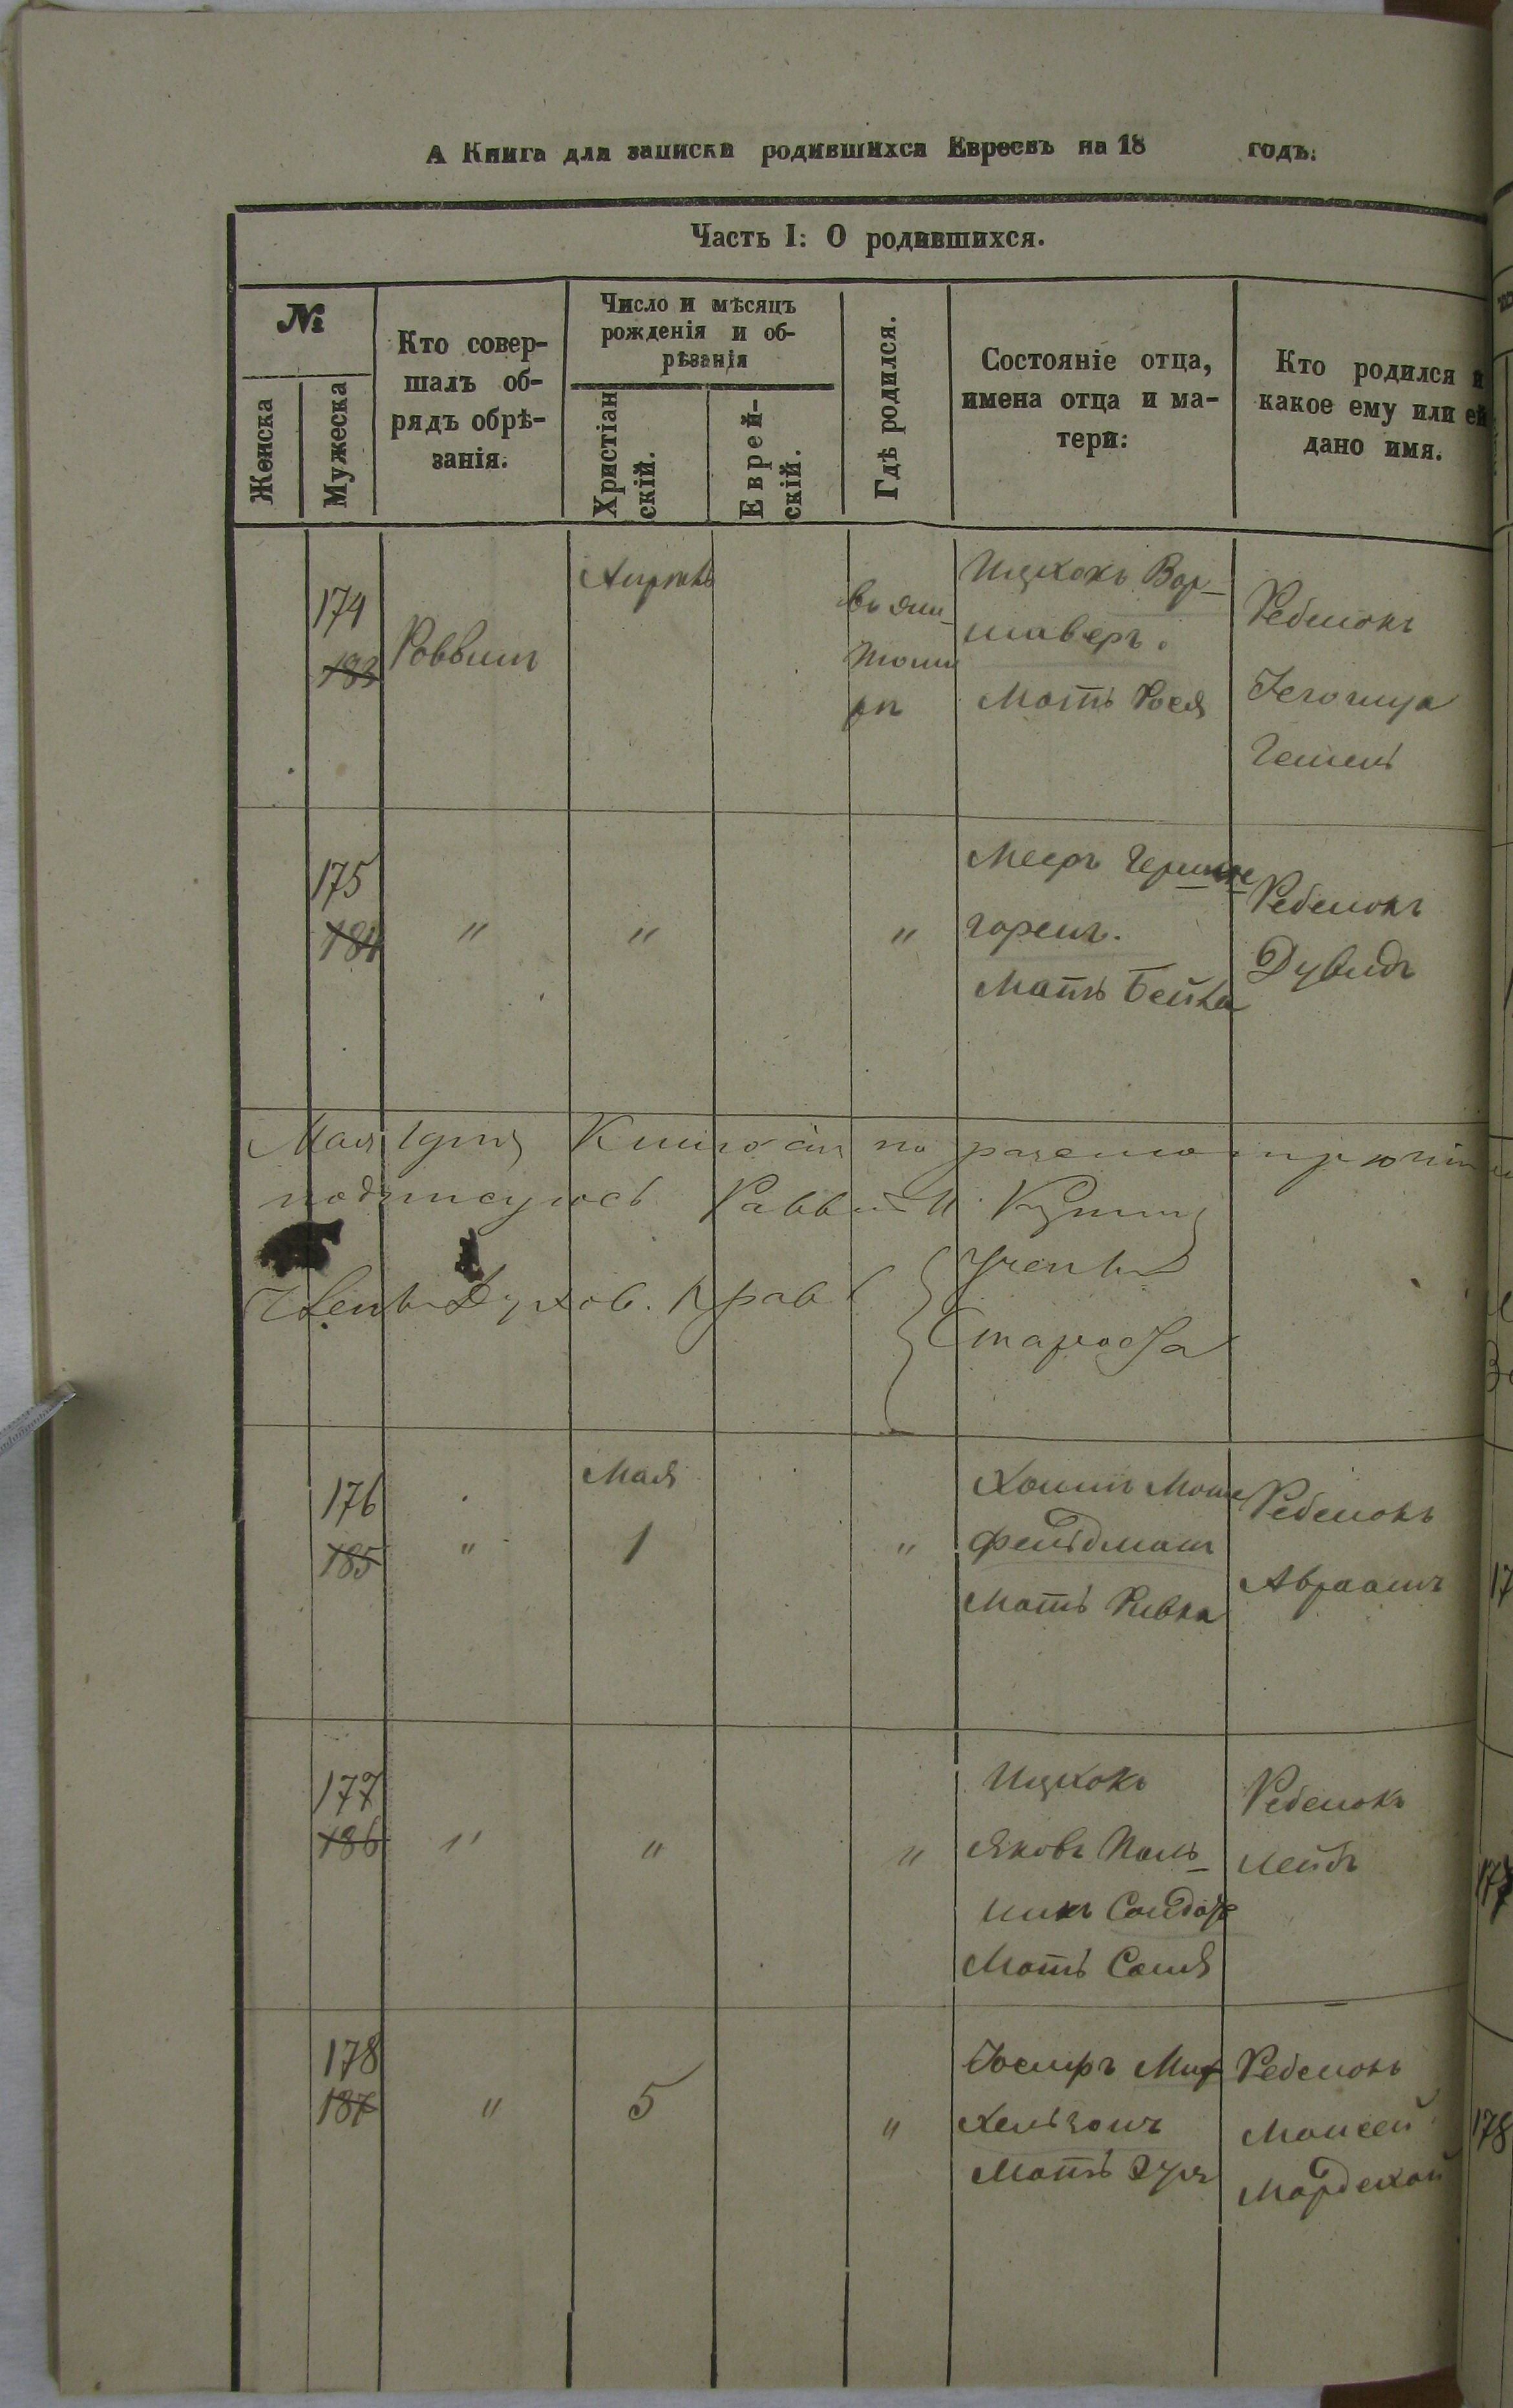 А Книга для записки родившихся Евреевъ на 18 годъ.
Часть I: О родившихся.
№
Женска
Мужеска
Кто совер-
шалъ об-
рядъ обрѣ-
занія.
Число и мѣсяцъ
рожденія и об-
рѣзанія
Христіан
скій.
Еврей-
скій.
Гдѣ родился.
Состояніе отца,
имена отца и ма-
тери:
Кто родился и
какое ему или ей
дано имя.
174
183
Раввинъ
Апрѣль
въ Жи_
томи
рѣ
Ицхокъ Вар_
шаверъ.
Мать Рося
Ребенокъ
Іегошуа
Гешель
175
184
"
"
"
Мееръ
горенъ.
Мать Бейла
Ребенокъ
Дувидъ
Мая 1 дня Книга сія по
подписуюсь Раввинъ
Членъ Духов. Прав
Ученый
Староста
176
185
"
Мая
1
"
Хаимъ Моше
Фельдманъ
Мать Ривка
Ребенокъ
Авраамъ
177
186
"
"
"
Ицхокъ
Яковъ Поль_
Мать Сося
Ребенокъ
Лейбъ
178
187
"
5
"
Іосифъ
Мать
Ребенокъ
Моисей
Мордехай
17
177
178